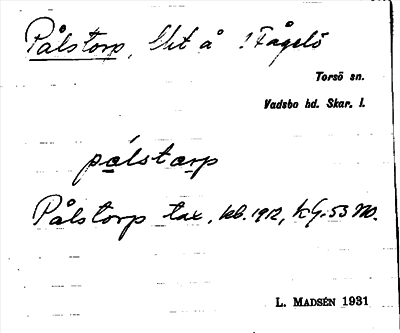 Pålstorp, Utt å Fågelö
Torsö sn.
Vadsbo hd. Skar. l.
pålstɑrp
Pålstorp tax., kb. 1912, kG. 53 NO.
L. MADSÉN 1931